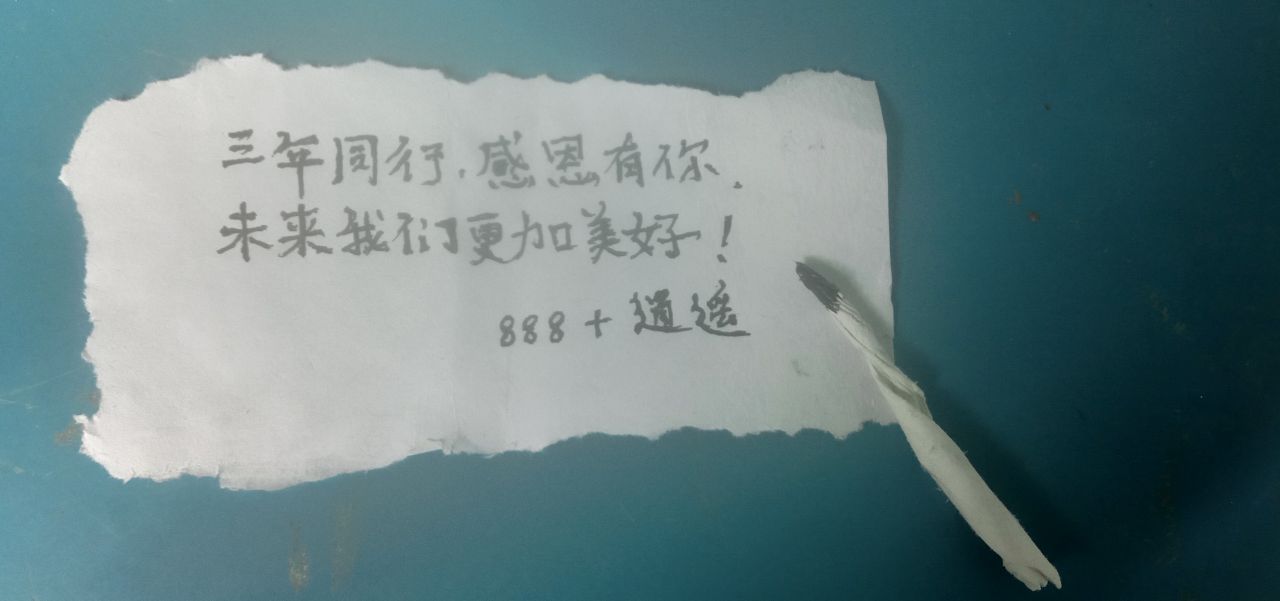 三年同行,感恩有你.
未来我们更加美好!
888+逍遥